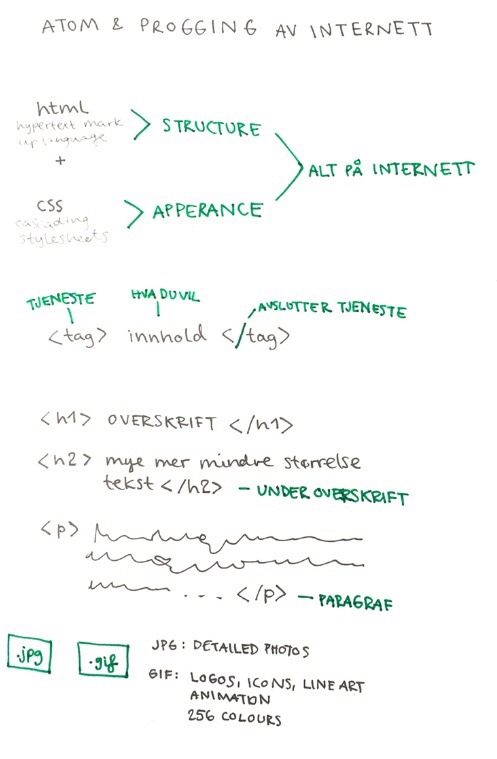 ATOM & PROGGING AV INTERNETT
html
hypertext mark
up language
STRUCTURE
+
ALT PÅ INTERNETT
CSS
cascading
stylesheets
APPERANCE
TJENESTE HVA DU VIL AVSLUTTER TJENESTE
<tag> innhold </tag>
<h1> OVERSKRIFT </h1>
<h2> mye mer mindre størrelse
tekst </h2> – UNDEROVERSKRIFT
<p>
... </p> – PARAGRAF
.jpg
.gif
JPG: DETAILED PHOTOS
GIF: LOGOS, ICONS, LINE ART
ANIMATION
256 COLOURS